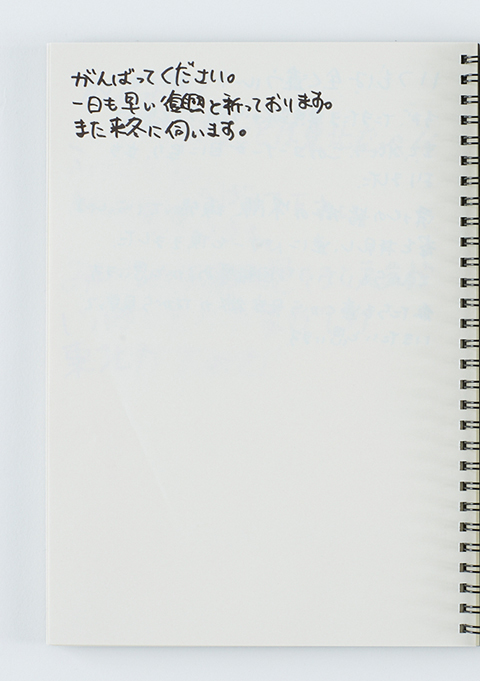 がんばってください。
一日も早い復興と祈っております。
また来冬に伺います。